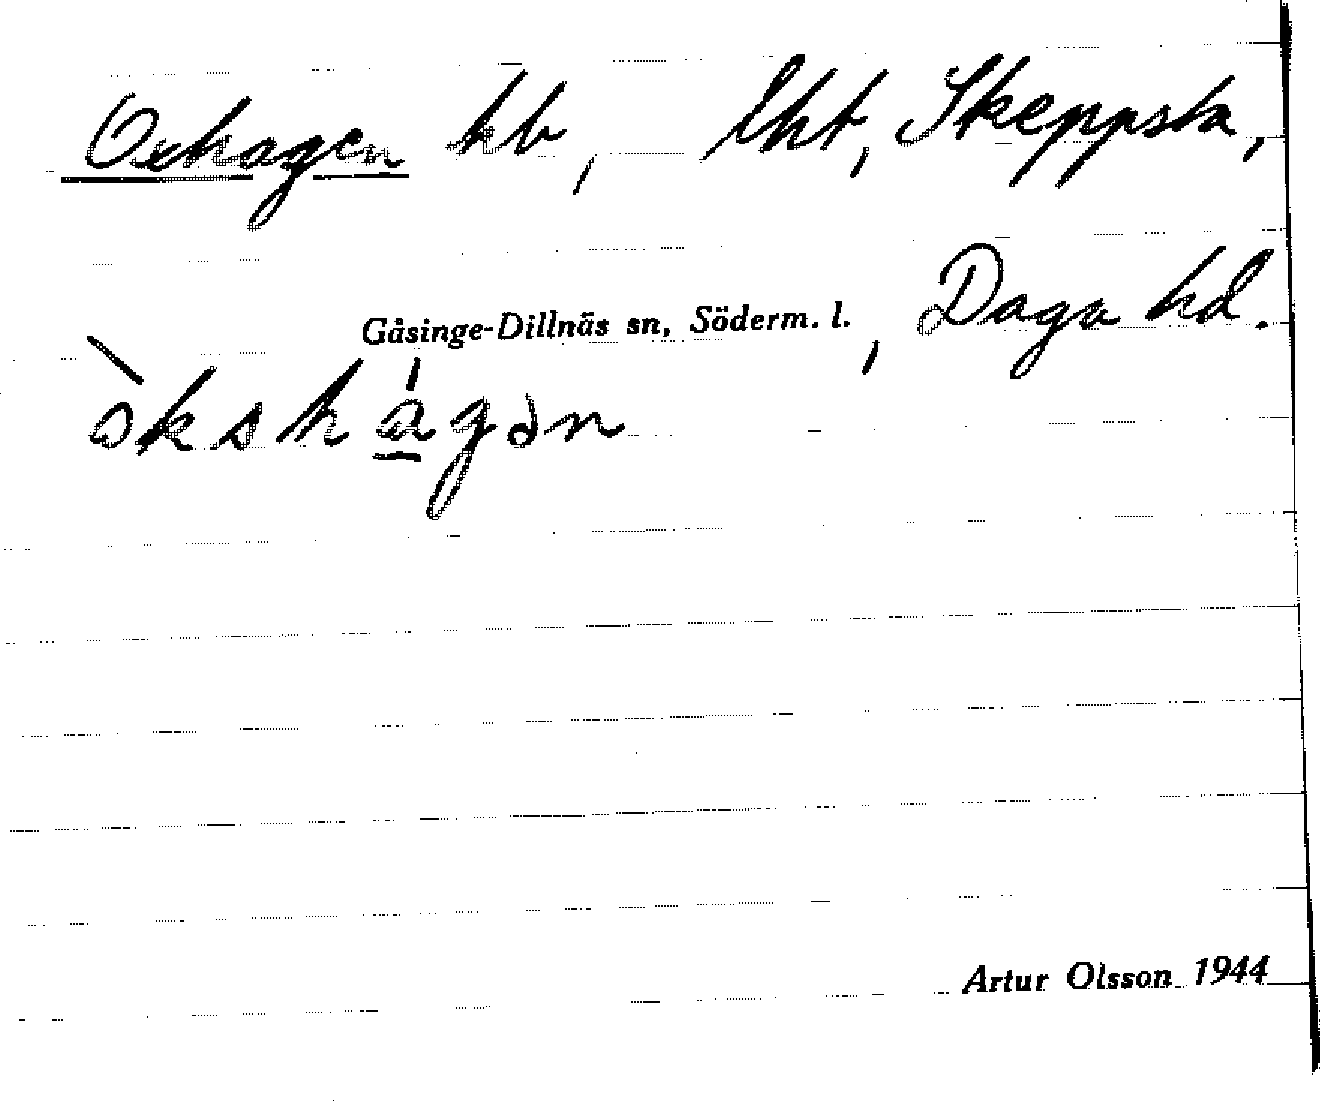 Oxhagen hb, lht, Skeppsta,
Gåsinge-Dillnäs sn, Söderm. l., Daga hd.
òkshágən
Artur Olsson 1944